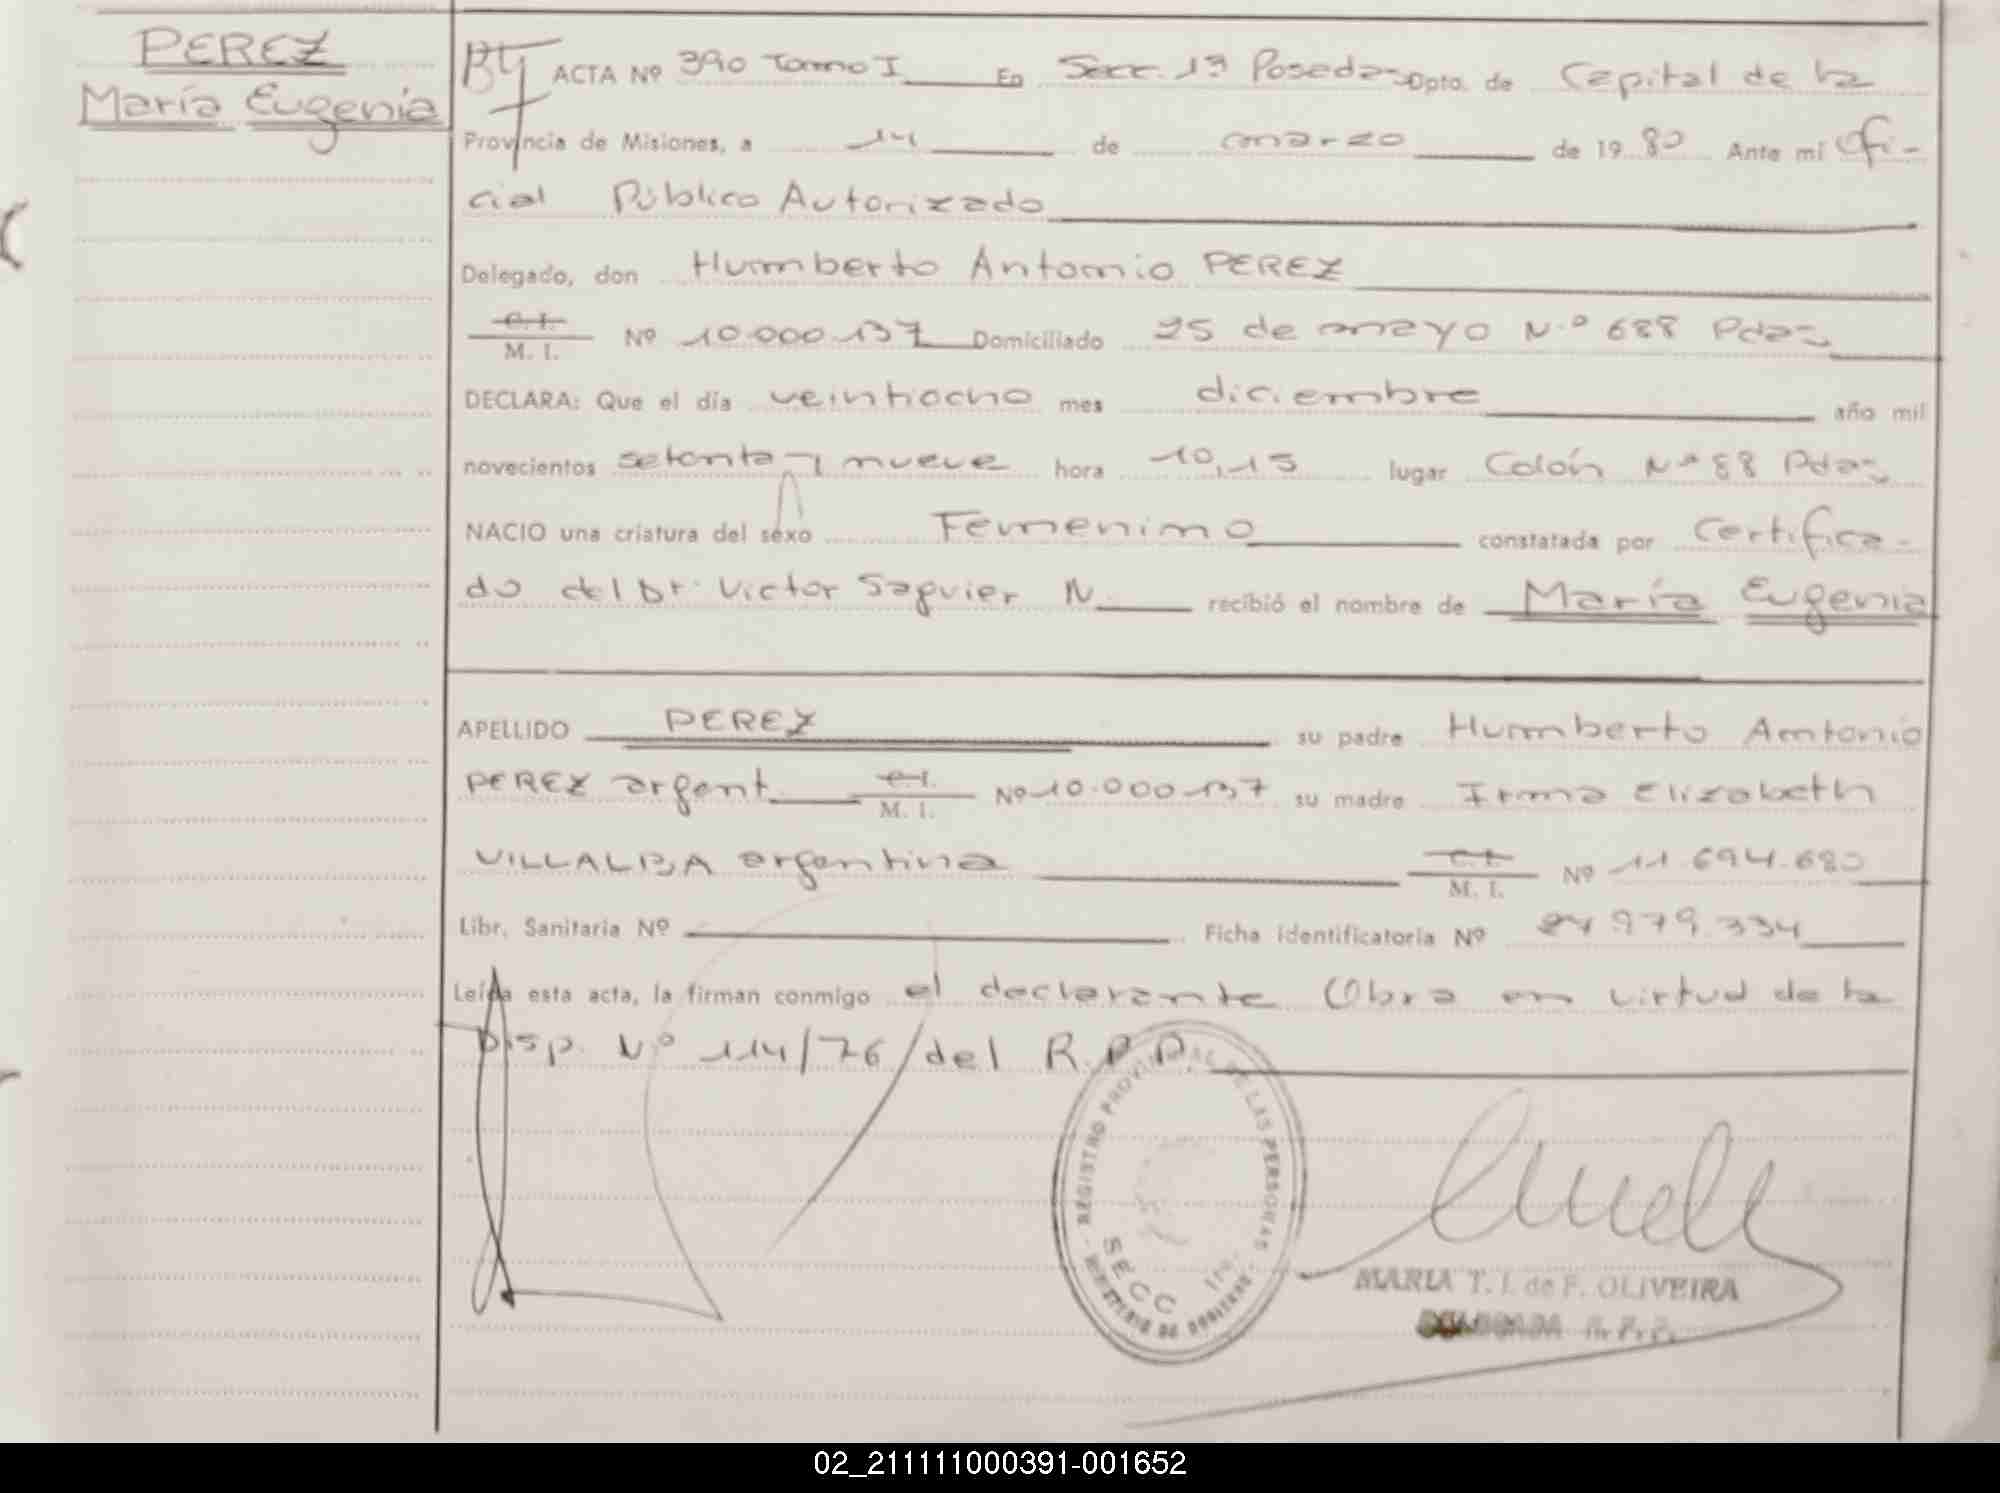 PEREZ
María Eugenia
ACTA Nº 390 Tomo I En Secc. 1ª Posadas Dpto. de Capital de la
Provincia de Misiones, a 14 de marzo de 1980 Ante mí Ofi-
cial Público Autorizado
Delegado, don Humberto Antonio PEREZ
C. I.
M. I. Nº 10.000.137 Domiciliado 25 de mayo N.º 688 Pdas
DECLARA: Que el día veintiocho mes diciembre año mil
novecientos setenta y nueve hora 10,15 lugar Colón Nº 88 Pdas
NACIO una criatura del sexo Femenino constatada por Certifica-
do del Dr. Victor Saguier N. recibió el nombre de María Eugenia
APELLIDO PEREZ su padre Humberto Antonio
PEREZ argent. C. I. M. I. Nº 10.000.137 su madre Irma Elizabeth
VILLALBA argentina C. I. M. I. Nº 11.694.680
Libr. Sanitaria Nº Ficha identificatoria Nº 27.979.334
Leída esta acta, la firman conmigo el declarante Obra en virtud de la
Disp. Nº 114/76 del R.P.P.
REGISTRO PROVINCIAL DE LAS PERSONAS
SECC
MARIA T. I. de F. OLIVEIRA
DELEGADA R. P. P.
02_211111000391-001652